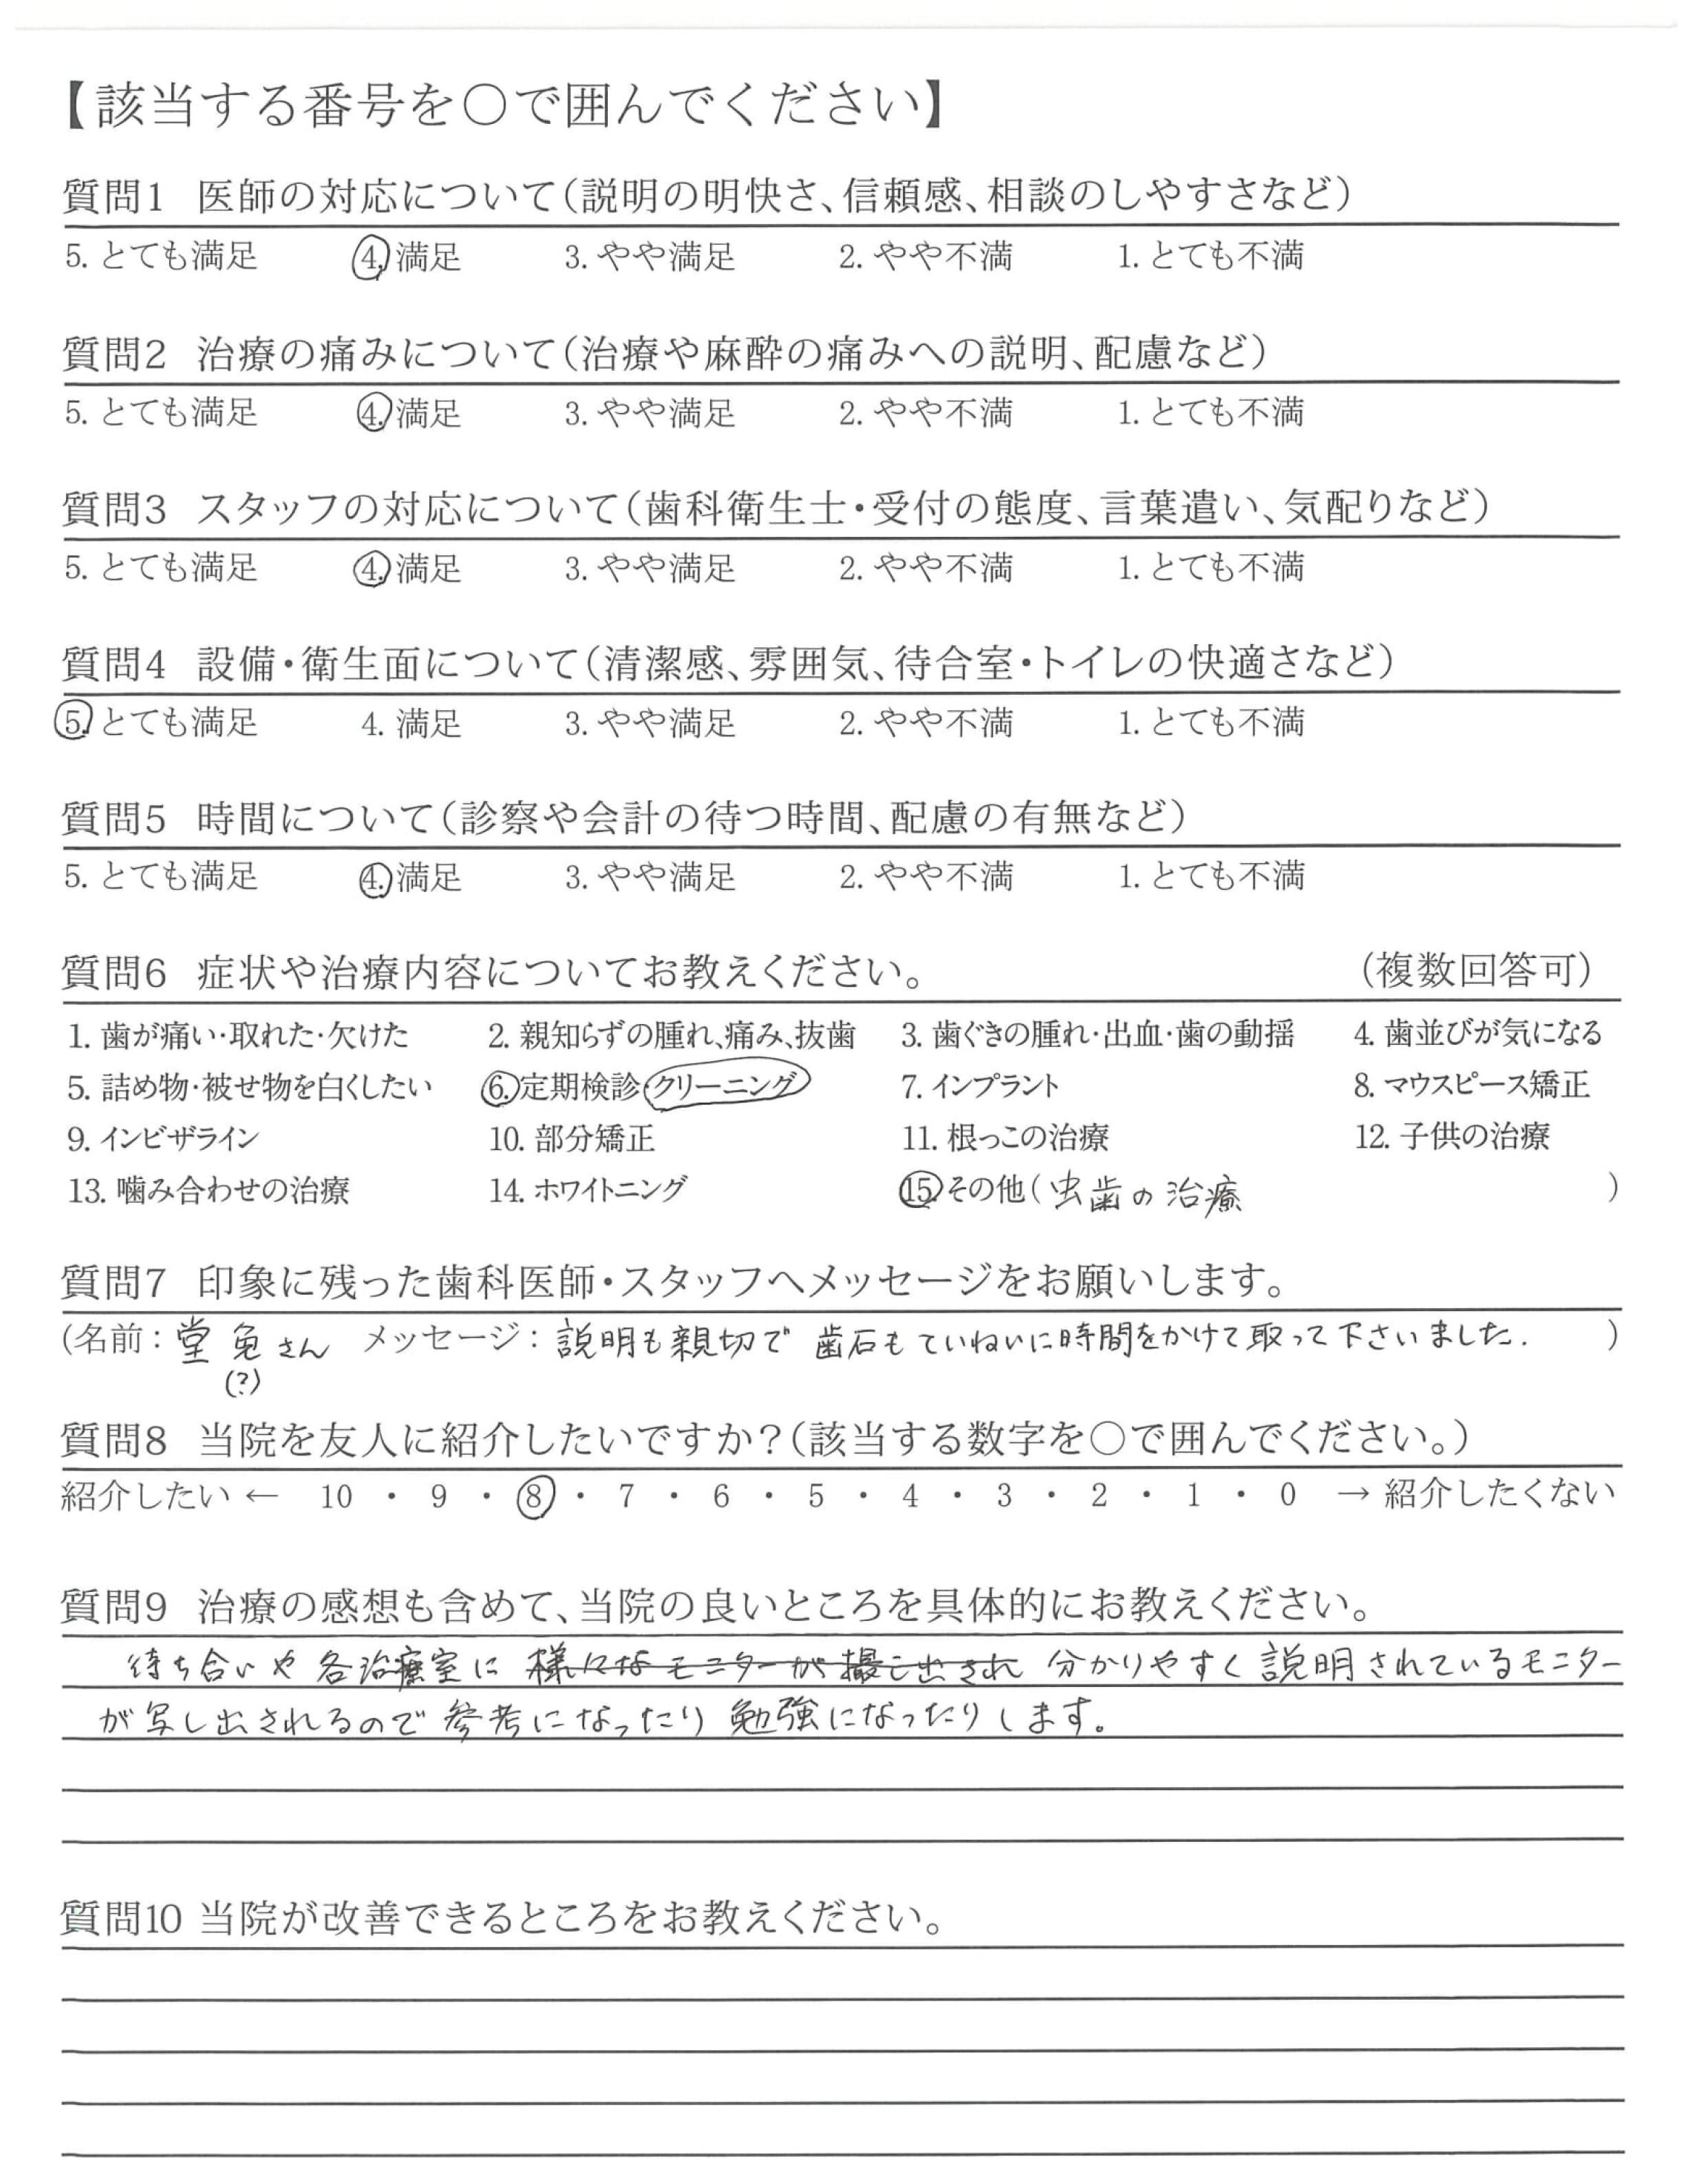 【該当する番号を○で囲んでください】
質問1 医師の対応について(説明の明快さ、信頼感、相談のしやすさなど)
5. とても満足 4. 満足 3. やや満足 2. やや不満 1. とても不満
質問2 治療の痛みについて(治療や麻酔の痛みへの説明、配慮など)
5. とても満足 4. 満足 3. やや満足 2. やや不満 1. とても不満
質問3 スタッフの対応について(歯科衛生士・受付の態度、言葉遣い、気配りなど)
5. とても満足 4. 満足 3. やや満足 2. やや不満 1. とても不満
質問4 設備・衛生面について(清潔感、雰囲気、待合室・トイレの快適さなど)
5. とても満足 4. 満足 3. やや満足 2. やや不満 1. とても不満
質問5 時間について(診察や会計の待つ時間、配慮の有無など)
5. とても満足 4. 満足 3. やや満足 2. やや不満 1. とても不満
質問6 症状や治療内容についてお教えください。 (複数回答可)
1. 歯が痛い・取れた・欠けた 2. 親知らずの腫れ、痛み、抜歯 3. 歯ぐきの腫れ・出血・歯の動揺 4. 歯並びが気になる
5. 詰め物・被せ物を白くしたい 6. 定期検診・クリーニング 7. インプラント 8. マウスピース矯正
9. インビザライン 10. 部分矯正 11. 根っこの治療 12. 子供の治療
13. 噛み合わせの治療 14. ホワイトニング 15. その他(虫歯の治療 )
質問7 印象に残った歯科医師・スタッフへメッセージをお願いします。
(名前：堂 さん メッセージ：説明も親切で 歯石もていねいに時間をかけて取って下さいました. )
(?)
質問8 当院を友人に紹介したいですか？(該当する数字を○で囲んでください。)
紹介したい ← 10 ・ 9 ・ 8 ・ 7 ・ 6 ・ 5 ・ 4 ・ 3 ・ 2 ・ 1 ・ 0 → 紹介したくない
質問9 治療の感想も含めて、当院の良いところを具体的にお教えください。
待ち合いや 各治療室に 様々なモニターが 出され 分かりやすく 説明されているモニター
が写し出されるので 参考になったり 勉強になったりします。
質問10 当院が改善できるところをお教えください。